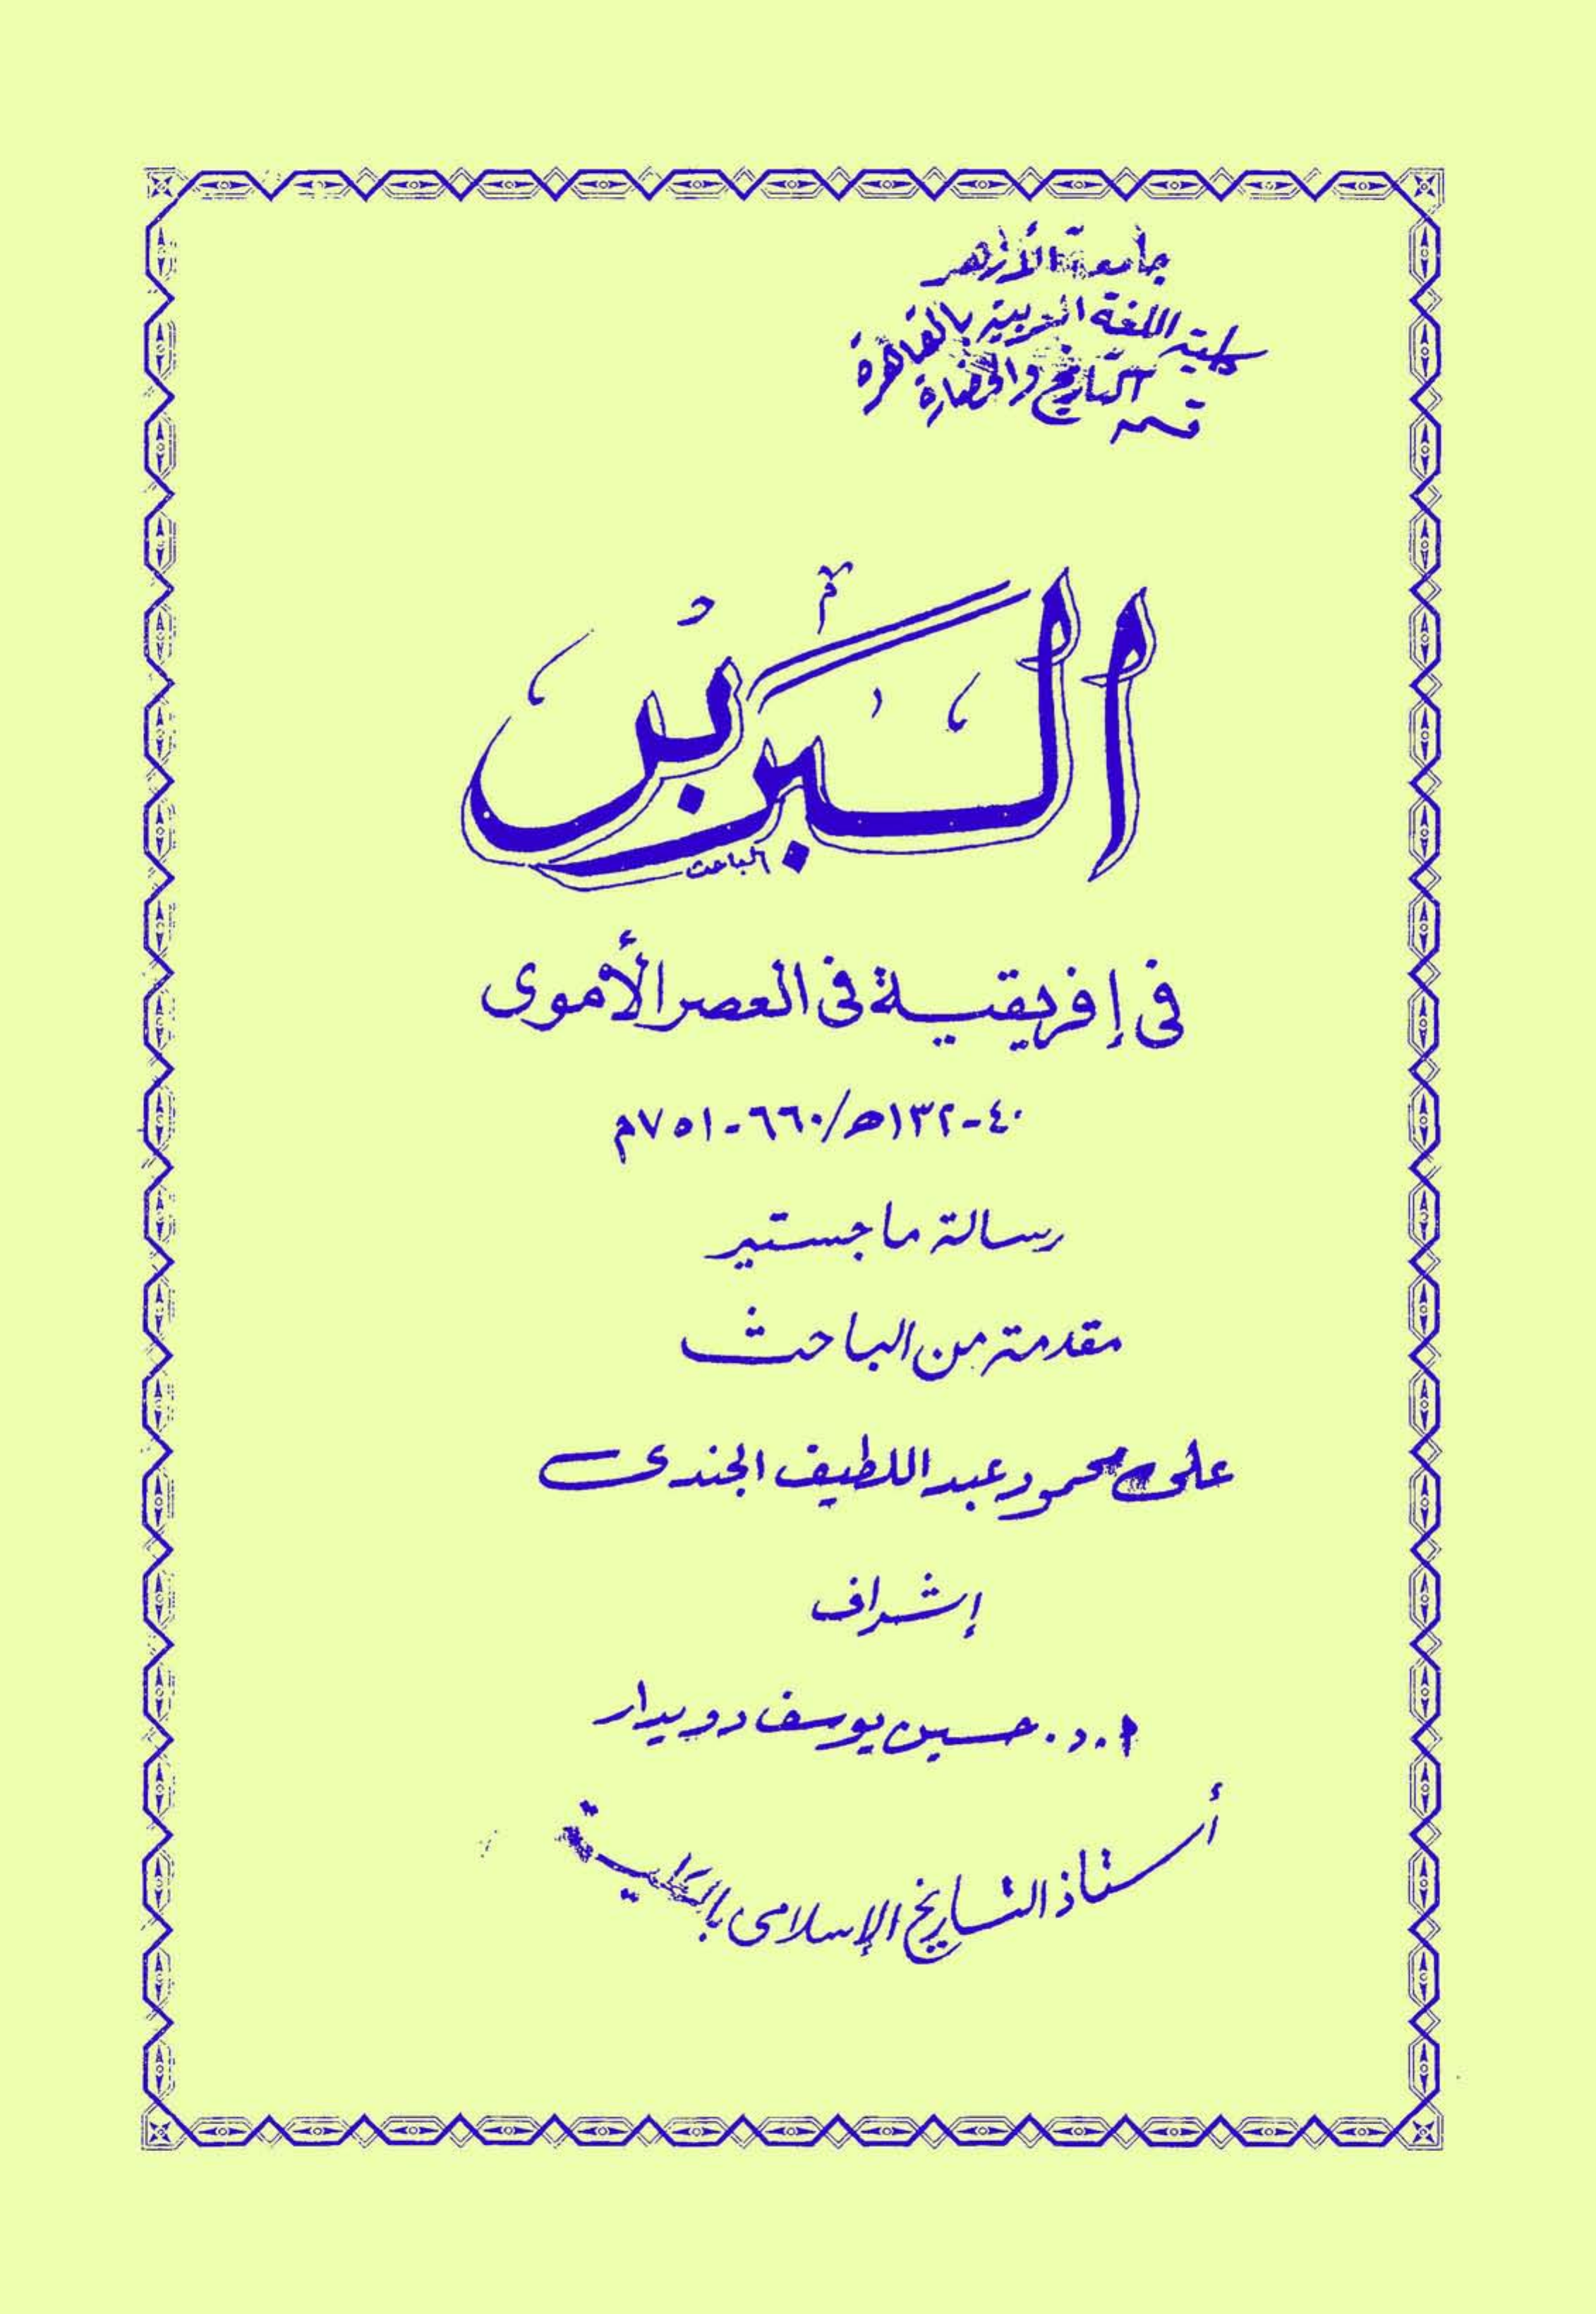 جامعة الأزهر
كلية اللغة العربية بالقاهرة
قسم التاريخ والحضارة
البربر
الباحث
فى إفريقية فى العصر الأموى
٤٠-١٣٢ھ/٦٦٠-٧٥١م
رسالة ماجستير
مقدمة من الباحث
على محمود عبد اللطيف الجندى
إشراف
ا.د. حسين يوسف دويدار
أستاذ التاريخ الإسلامى بالكلية